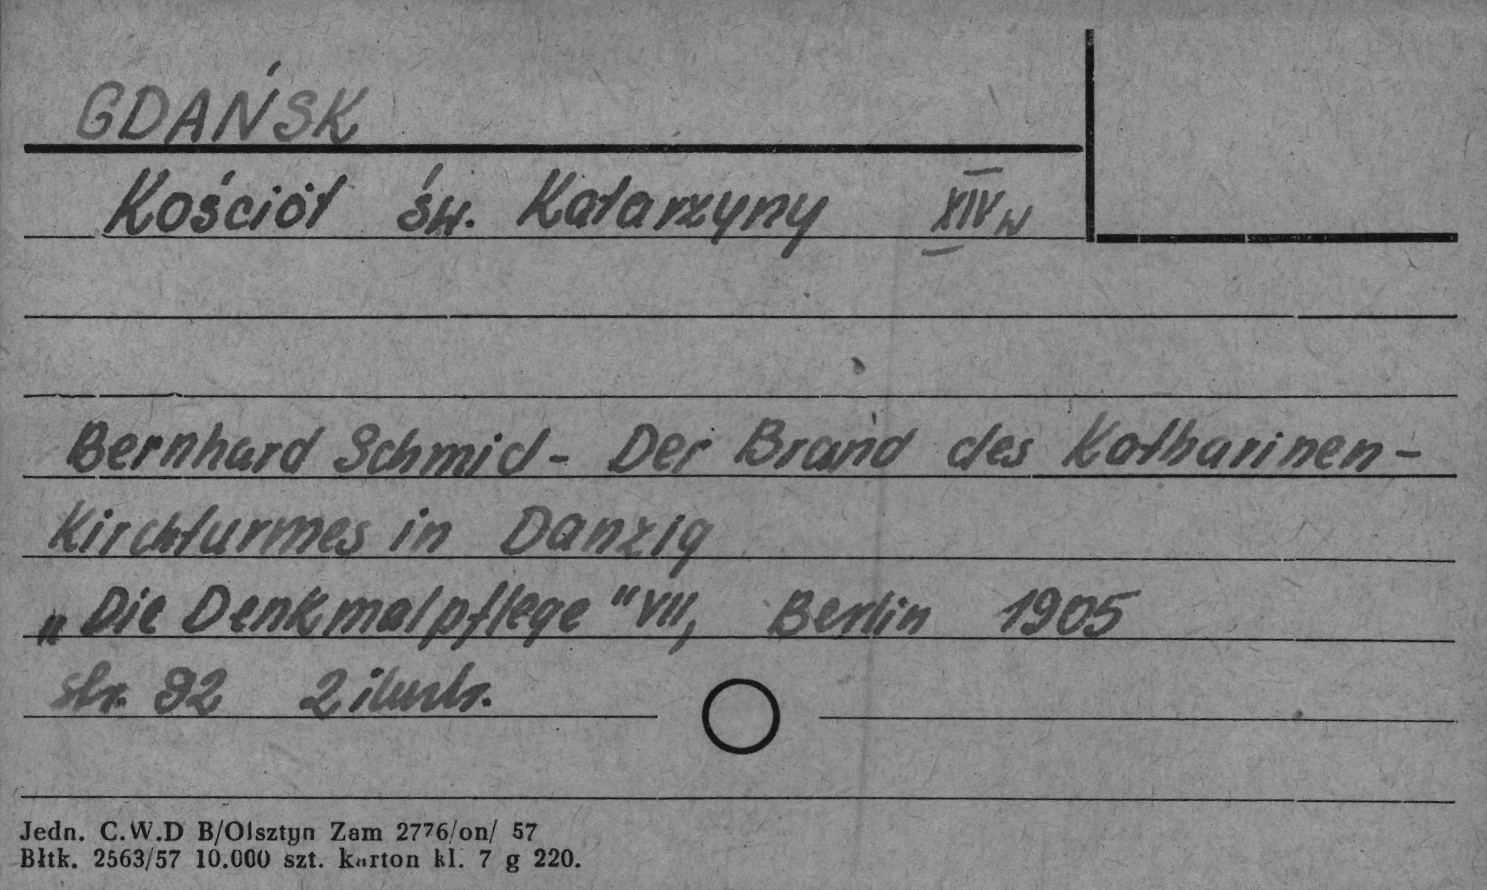 GDAŃSK
Kościół św. Katarzyny XIV w
Bernhard Schmid - Der Brand des Katharinen-
Kirchturmes in Danzig
„Die Denkmalpflege" VII, Berlin 1905
str. 92 2 ilustr.
Jedn. C.W.D B/Olsztyn Zam 2776/on/ 57
Błtk. 2563/57 10.000 szt. karton kl. 7 g 220.